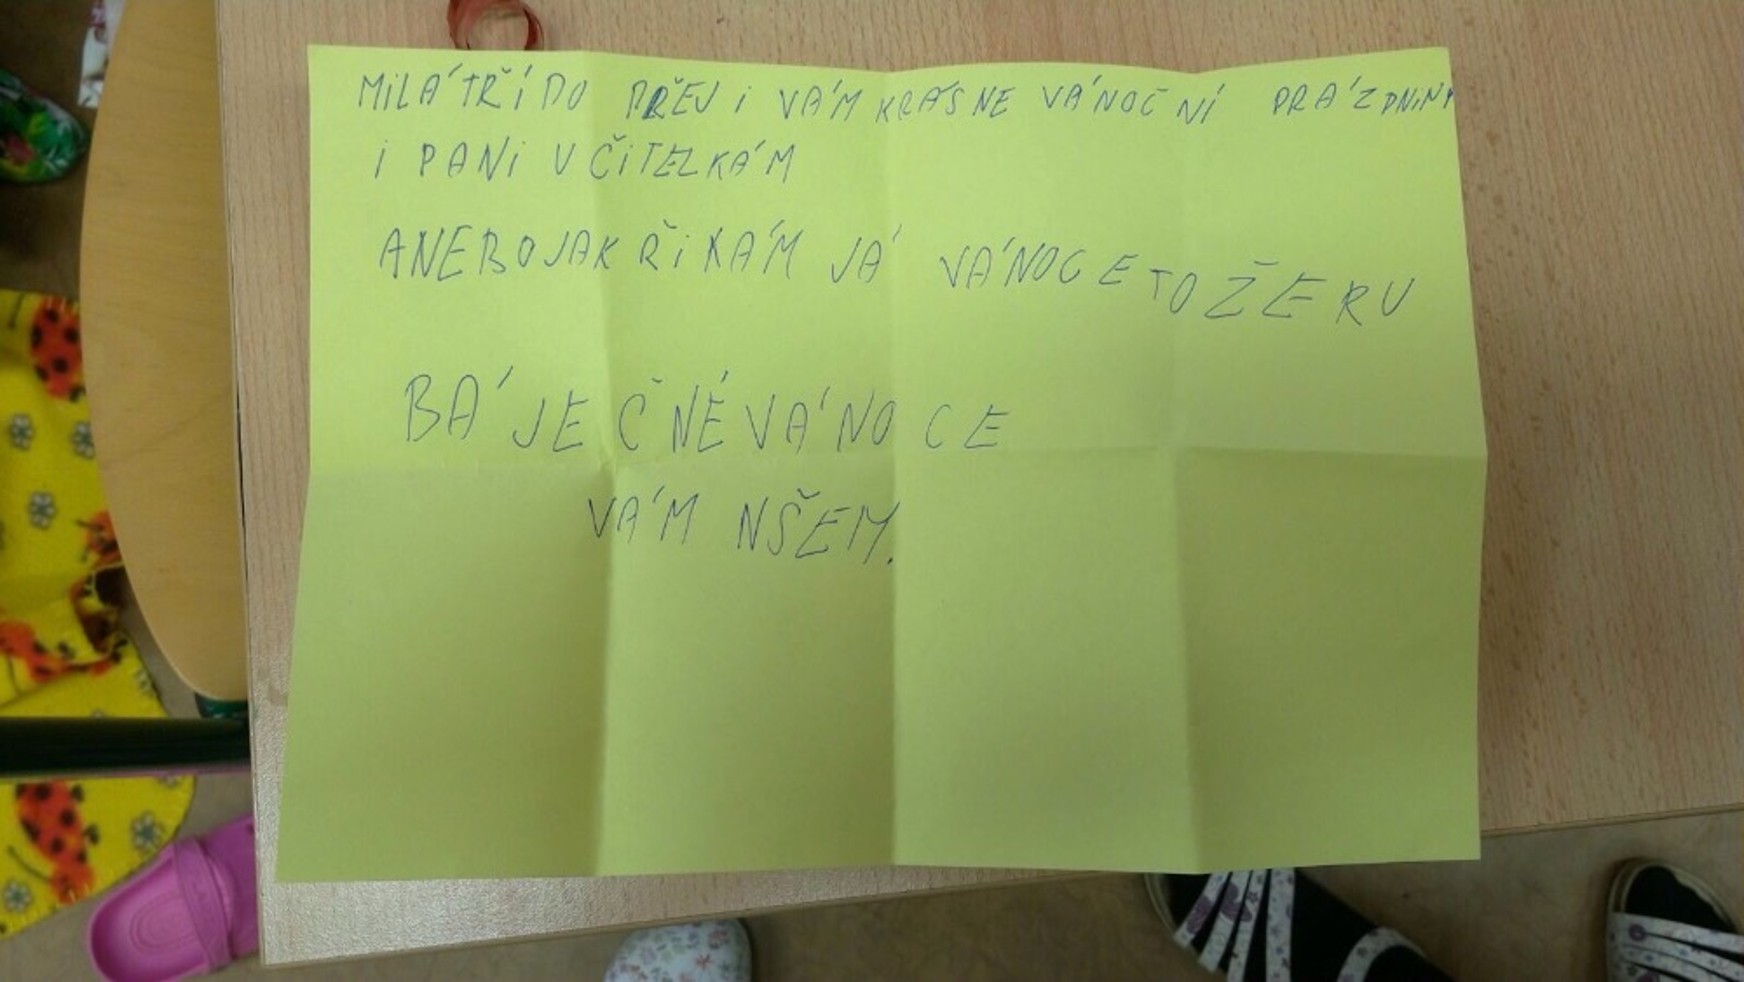 MILÁ TŘÍDO PŘEJI VÁM KRÁSNE VÁNOČNÍ PRÁZDNINY
I PANI UČITELKÁM
ANEBO JAK ŘIKÁM JÁ VÁNOCE TO ŽERU
BÁJEČNÉ VÁNOCE
VÁM NŠEM.